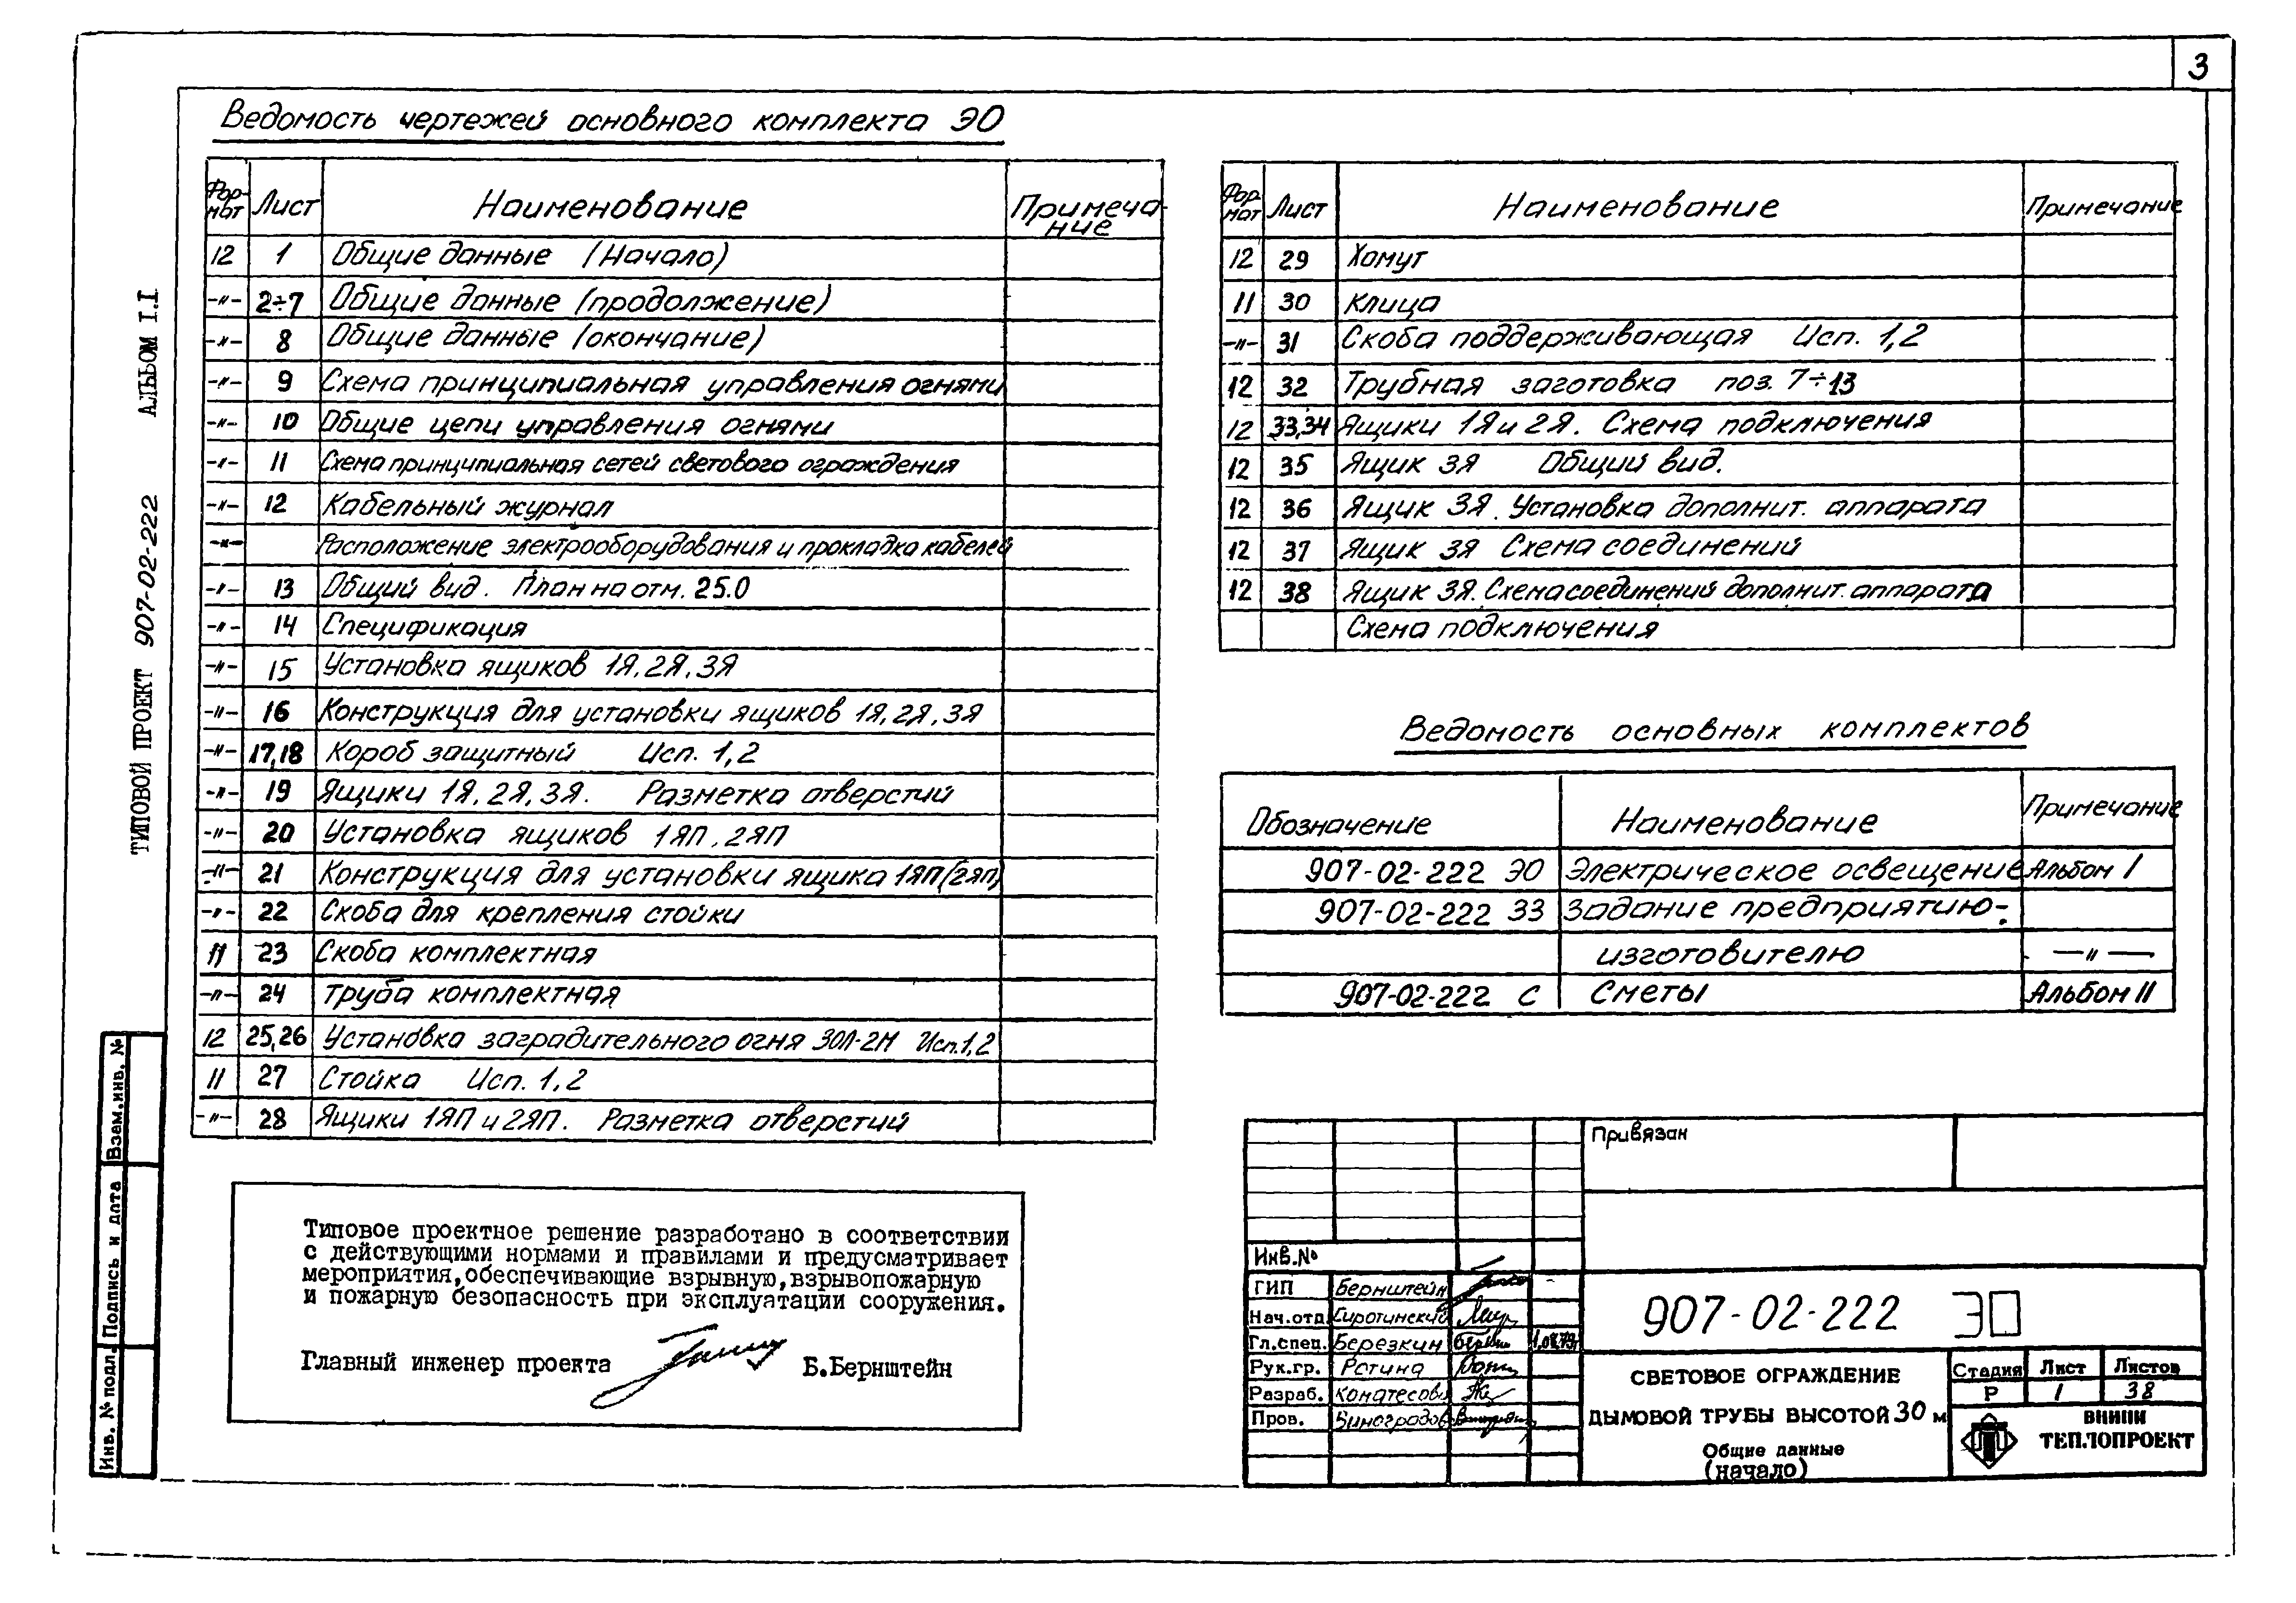 3
Ведомость чертежей основного комплекта ЭО
Фор-мат Лист Наименование Примеча-ние
12 1 Общие данные (Начало)
-"- 2÷7 Общие данные (продолжение)
-"- 8 Общие данные (окончание)
-"- 9 Схема принципиальная управления огнями
-"- 10 Общие цепи управления огнями
-"- 11 Схема принципиальная сетей светового ограждения
-"- 12 Кабельный журнал
-"- Расположение электрооборудования и прокладка кабелей
-"- 13 Общий вид. План на отм. 25.0
-"- 14 Спецификация
-"- 15 Установка ящиков 1Я, 2Я, 3Я
-"- 16 Конструкция для установки ящиков 1Я, 2Я, 3Я
-"- 17,18 Короб защитный Исп. 1,2
-"- 19 Ящики 1Я, 2Я, 3Я. Разметка отверстий
-"- 20 Установка ящиков 1ЯП, 2ЯП
-"- 21 Конструкция для установки ящика 1ЯП(2ЯП)
-"- 22 Скоба для крепления стойки
11 23 Скоба комплектная
-"- 24 Труба комплектная
12 25,26 Установка заградительного огня ЗОЛ-2М Исп.1,2
11 27 Стойка Исп. 1,2
-"- 28 Ящики 1ЯП и 2ЯП. Разметка отверстий
Фор мат Лист Наименование Примечание
12 29 Хомут
11 30 Клица
-"- 31 Скоба поддерживающая Исп. 1,2
12 32 Трубная заготовка поз. 7÷13
12 33,34 Ящики 1Я и 2Я. Схема подключения
12 35 Ящик 3Я Общий вид.
12 36 Ящик 3Я. Установка дополнит. аппарата
12 37 Ящик 3Я Схема соединений
12 38 Ящик 3Я. Схема соединений дополнит. аппарата
Схема подключения
Ведомость основных комплектов
Обозначение Наименование Примечание
907-02-222 ЭО Электрическое освещение Альбом I
907-02-222 ЗЗ Задание предприятию-
изготовителю -"-
907-02-222 С Сметы Альбом II
Типовое проектное решение разработано в соответствии
с действующими нормами и правилами и предусматривает
мероприятия, обеспечивающие взрывную, взрывопожарную
и пожарную безопасность при эксплуатации сооружения.
Главный инженер проекта Б.Бернштейн
Привязан
Инв.№
ГИП Бернштейн
Нач.отд. Сиротинский
Гл.спец. Березкин
Рук.гр. Ратина
Разраб.
Пров. Виноградов
907-02-222 ЭО
СВЕТОВОЕ ОГРАЖДЕНИЕ
ДЫМОВОЙ ТРУБЫ ВЫСОТОЙ 30 м
Общие данные
(начало)
Стадия Лист Листов
Р 1 38
ВНИПИ
ТЕПЛОПРОЕКТ
ТИПОВОЙ ПРОЕКТ 907-02-222 АЛЬБОМ I.I
Инв. № подл. Подпись и дата Взам.инв. №